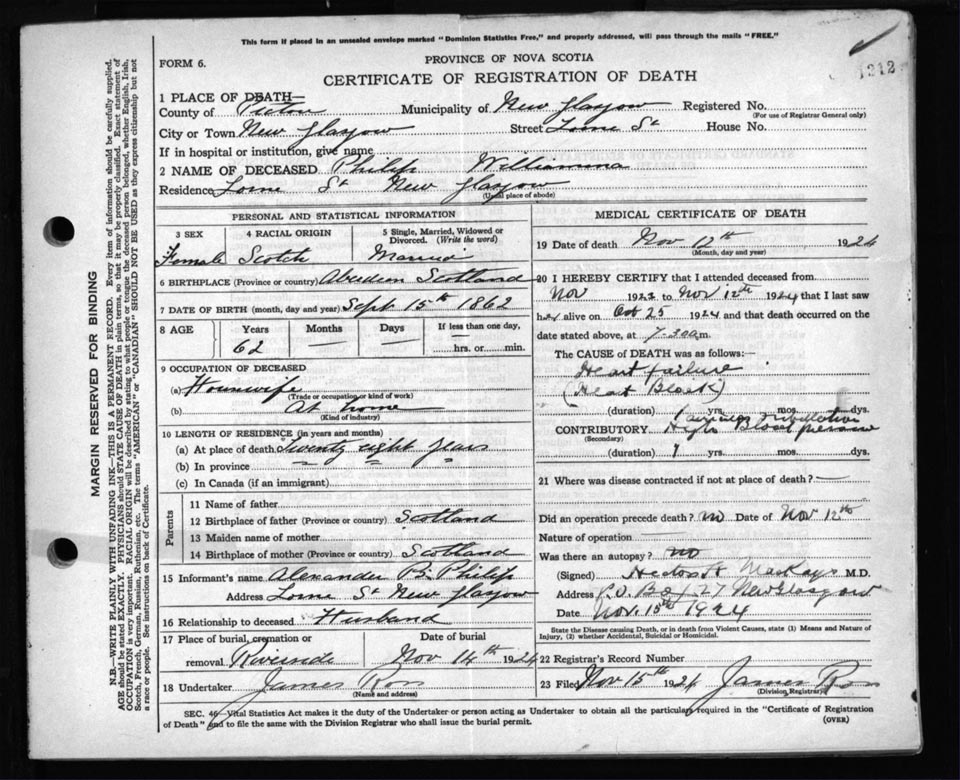 This form if placed in an unsealed envelope marked "Dominion Statistics Free," and properly addressed, will pass through the mails "FREE."
1212
FORM 6.
PROVINCE OF NOVA SCOTIA
CERTIFICATE OF REGISTRATION OF DEATH
1 PLACE OF DEATH—
County of Pictou Municipality of New Glasgow Registered No.
(For use of Registrar General only)
City or Town New Glasgow Street Lorne St House No.
If in hospital or institution, give name
2 NAME OF DECEASED Philip Williamina
Residence Lorne St New Glasgow
(Usual place of abode)
PERSONAL AND STATISTICAL INFORMATION
3 SEX 4 RACIAL ORIGIN 5 Single, Married, Widowed or Divorced. (Write the word)
Female Scotch Married
6 BIRTHPLACE (Province or country) Aberdeen Scotland
7 DATE OF BIRTH (month, day and year) Sept 15th 1862
8 AGE Years Months Days If less than one day,
62 — — — hrs. or min.
9 OCCUPATION OF DECEASED
(a) Housewife
(Trade or occupation or kind of work)
(b) At home
(Kind of industry)
10 LENGTH OF RESIDENCE (in years and months)
(a) At place of death twenty eight years
(b) In province
(c) In Canada (if an immigrant)
Parents
11 Name of father
12 Birthplace of father (Province or country) Scotland
13 Maiden name of mother
14 Birthplace of mother (Province or country) Scotland
15 Informant's name Alexander B. Philip
Address Lorne St New Glasgow
16 Relationship to deceased Husband
17 Place of burial, cremation or removal Date of burial
Riverside Nov 14th 1924
18 Undertaker James Ross
(Name and address)
MEDICAL CERTIFICATE OF DEATH
19 Date of death Nov 12th 1924
(Month, day and year)
20 I HEREBY CERTIFY that I attended deceased from
Nov 1923 to Nov 12th 1924 that I last saw
her alive on Oct 25 1924 and that death occurred on the
date stated above, at 7-30 a.m.
The CAUSE OF DEATH was as follows:—
Heart failure
(Heart Block)
(duration) 1 yrs. mos. dys.
CONTRIBUTORY High Blood pressure
(Secondary)
(duration) 1 yrs. mos. dys.
21 Where was disease contracted if not at place of death? —
Did an operation precede death? no Date of Nov 12th
Nature of operation —
Was there an autopsy? no
(Signed) Hector H MacKay M.D.
Address P.O. Box 127 New Glasgow
Date Nov. 15th 1924
State the Disease causing Death, or in death from Violent Causes, state (1) Means and Nature of Injury, (2) whether Accidental, Suicidal or Homicidal.
22 Registrar's Record Number
23 Filed Nov 15th 1924 James Ross
(Division Registrar)
SEC. 46—Vital Statistics Act makes it the duty of the Undertaker or person acting as Undertaker to obtain all the particulars required in the "Certificate of Registration
of Death" and to file the same with the Division Registrar who shall issue the burial permit.
(OVER)
MARGIN RESERVED FOR BINDING
N.B.—WRITE PLAINLY WITH UNFADING INK—THIS IS A PERMANENT RECORD. Every item of information should be carefully supplied.
AGE should be stated EXACTLY. PHYSICIANS should STATE CAUSE OF DEATH in plain terms, so that it may be properly classified. Exact statement of
OCCUPATION is very important. RACIAL ORIGIN will be described by stating to what people or tongue the deceased person belonged, whether English, Irish,
Scotch, French, German, Russian, Ruthenian, etc. The terms "AMERICAN" or "CANADIAN" SHOULD NOT BE USED as they express citizenship but not
a race or people. See instructions on back of Certificate.